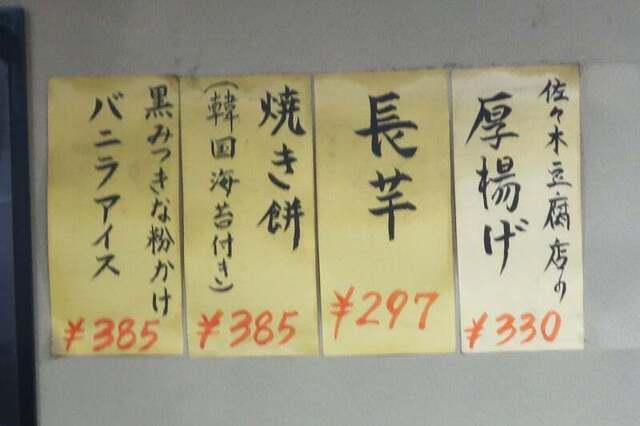 佐々木豆腐店の
厚揚げ
¥330
長芋
¥297
焼き餅
(韓国海苔付き)
¥385
黒みつきな粉かけ
バニラアイス
¥385